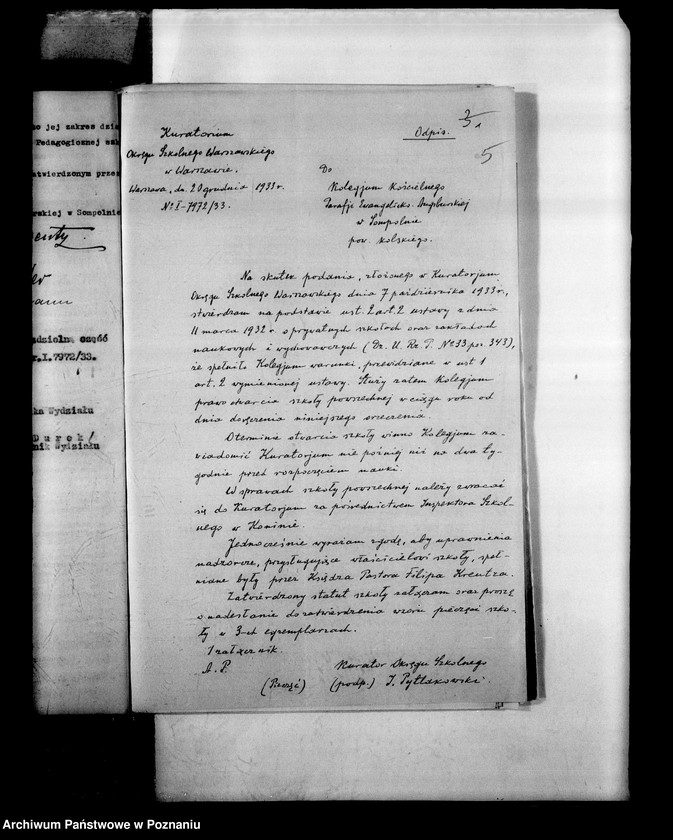 jej zakres
Pedagogicznej
atwierdzonym przez
w Sompolnie
zdzielną część
r.I.7972/33.
ka Wydziału
Durek/
nik Wydziału
Odpis.
5
Kuratorium
Okręgu Szkolnego Warszawskiego
w Warszawie.
Warszawa, dn. 20 grudnia 1933 r.
№ I-7972/33.
Do
Kolegjum Kościelnego
Parafji Ewangelicko-Augsburskiej
w Sompolnie
pow. kolskiego.
Na skutek podania, złożonego w Kuratorjum
Okręgu Szkolnego Warszawskiego dnia 7 października 1933 r.,
stwierdzam na podstawie ust. 2 art. 2 ustawy z dnia
11 marca 1932 r. o prywatnych szkołach oraz zakładach
naukowych i wychowawczych (Dz. U. Rz. P. № 33 poz. 343),
że spełniło Kolegjum warunki, przewidziane w ust 1
art. 2 wymienionej ustawy. Służy zatem Kolegjum
prawo otwarcia szkoły powszechnej w ciągu roku od
dnia doręczenia niniejszego orzeczenia.
O terminie otwarcia szkoły winno Kolegjum za-
wiadomić Kuratorjum nie później niż na dwa ty-
godnie przed rozpoczęciem nauki.
W sprawach szkoły powszechnej należy zwracać
się do Kuratorjum za pośrednictwem Inspektora Szkol-
nego w Koninie.
Jednocześnie wyrażam zgodę, aby uprawnienia
nadzorcze, przysługujące właścicielowi szkoły, speł-
niane były przez Księdza Pastora Filipa Kreutza.
Zatwierdzony statut szkoły załączam oraz proszę
o nadesłanie do zatwierdzenia wzoru pieczęci szko-
ły w 3-ch egzemplarzach.
1 załącznik.
A. P.
(Pieczęć)
Kurator Okręgu Szkolnego
(podp.) I. Pytlakowski.
Archiwum Państwowe w Poznaniu